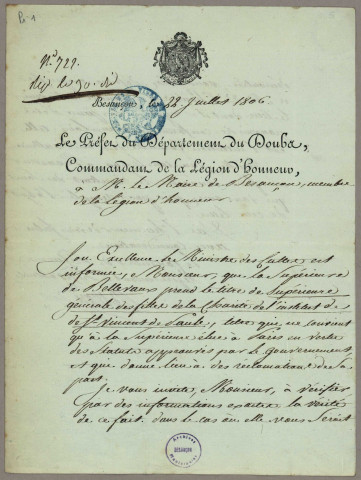 P. 1
N° 729.
rép. le 30. du
Besançon, les 22 Juillet 1806.
Le Préfet du Département du Doubs,
Commandant de la Légion d'honneur,
à M. le Maire de Besançon, membre
de la Légion d'honneur.
Son Excellence le Ministre des Cultes est
informée, Monsieur, que la Supérieure
de Bellevaux prend le titre de Supérieure
générale des filles de la Charité de l'institut de
de St. Vincent de Paule, titre qui ne convient
qu'à la Supérieure élue à Paris en vertu
des Statuts approuvés par le Gouvernement,
et que donne lieu à des réclamations de sa
part.
Je vous invite, Monsieur, à vérifier
par des informations exactes la vérité
de ce fait. dans le cas où elle vous serait
Archives
BESANÇON
Municipales